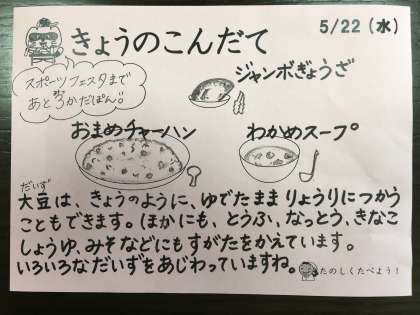 きょうのこんだて
5/22（水）
スポーツフェスタまで
あと3かだぽん!!
ジャンボぎょうざ
おまめチャーハン
わかめスープ
だいず
大豆は、きょうのように、ゆでたままりょうりにつかう
こともできます。ほかにも、とうふ、なっとう、きなこ
しょうゆ、みそなどにもすがたをかえています。
いろいろなだいずをあじわっていますね。
たのしくたべよう！